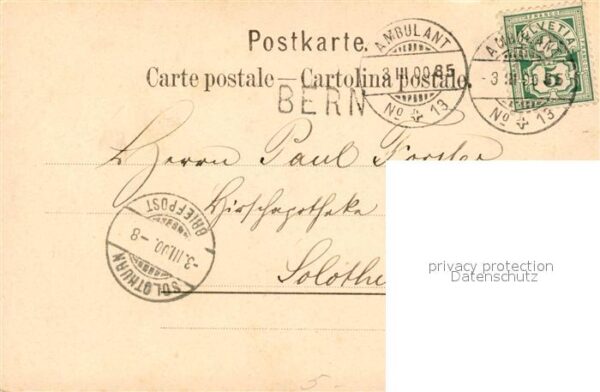 Postkarte.
Carte postale – Cartolina postale.
AMBULANT
- 3 III.00 85
No 13
AMBULANT
- 3 III 00
No 13
FRANCO
HELVETIA
5
BERN
Herrn Paul Forster
Hirschapotheke
Solothu
BRIEFPOST
-3.III.00.-8
SOLOTHURN
privacy protection
Datenschutz
5-